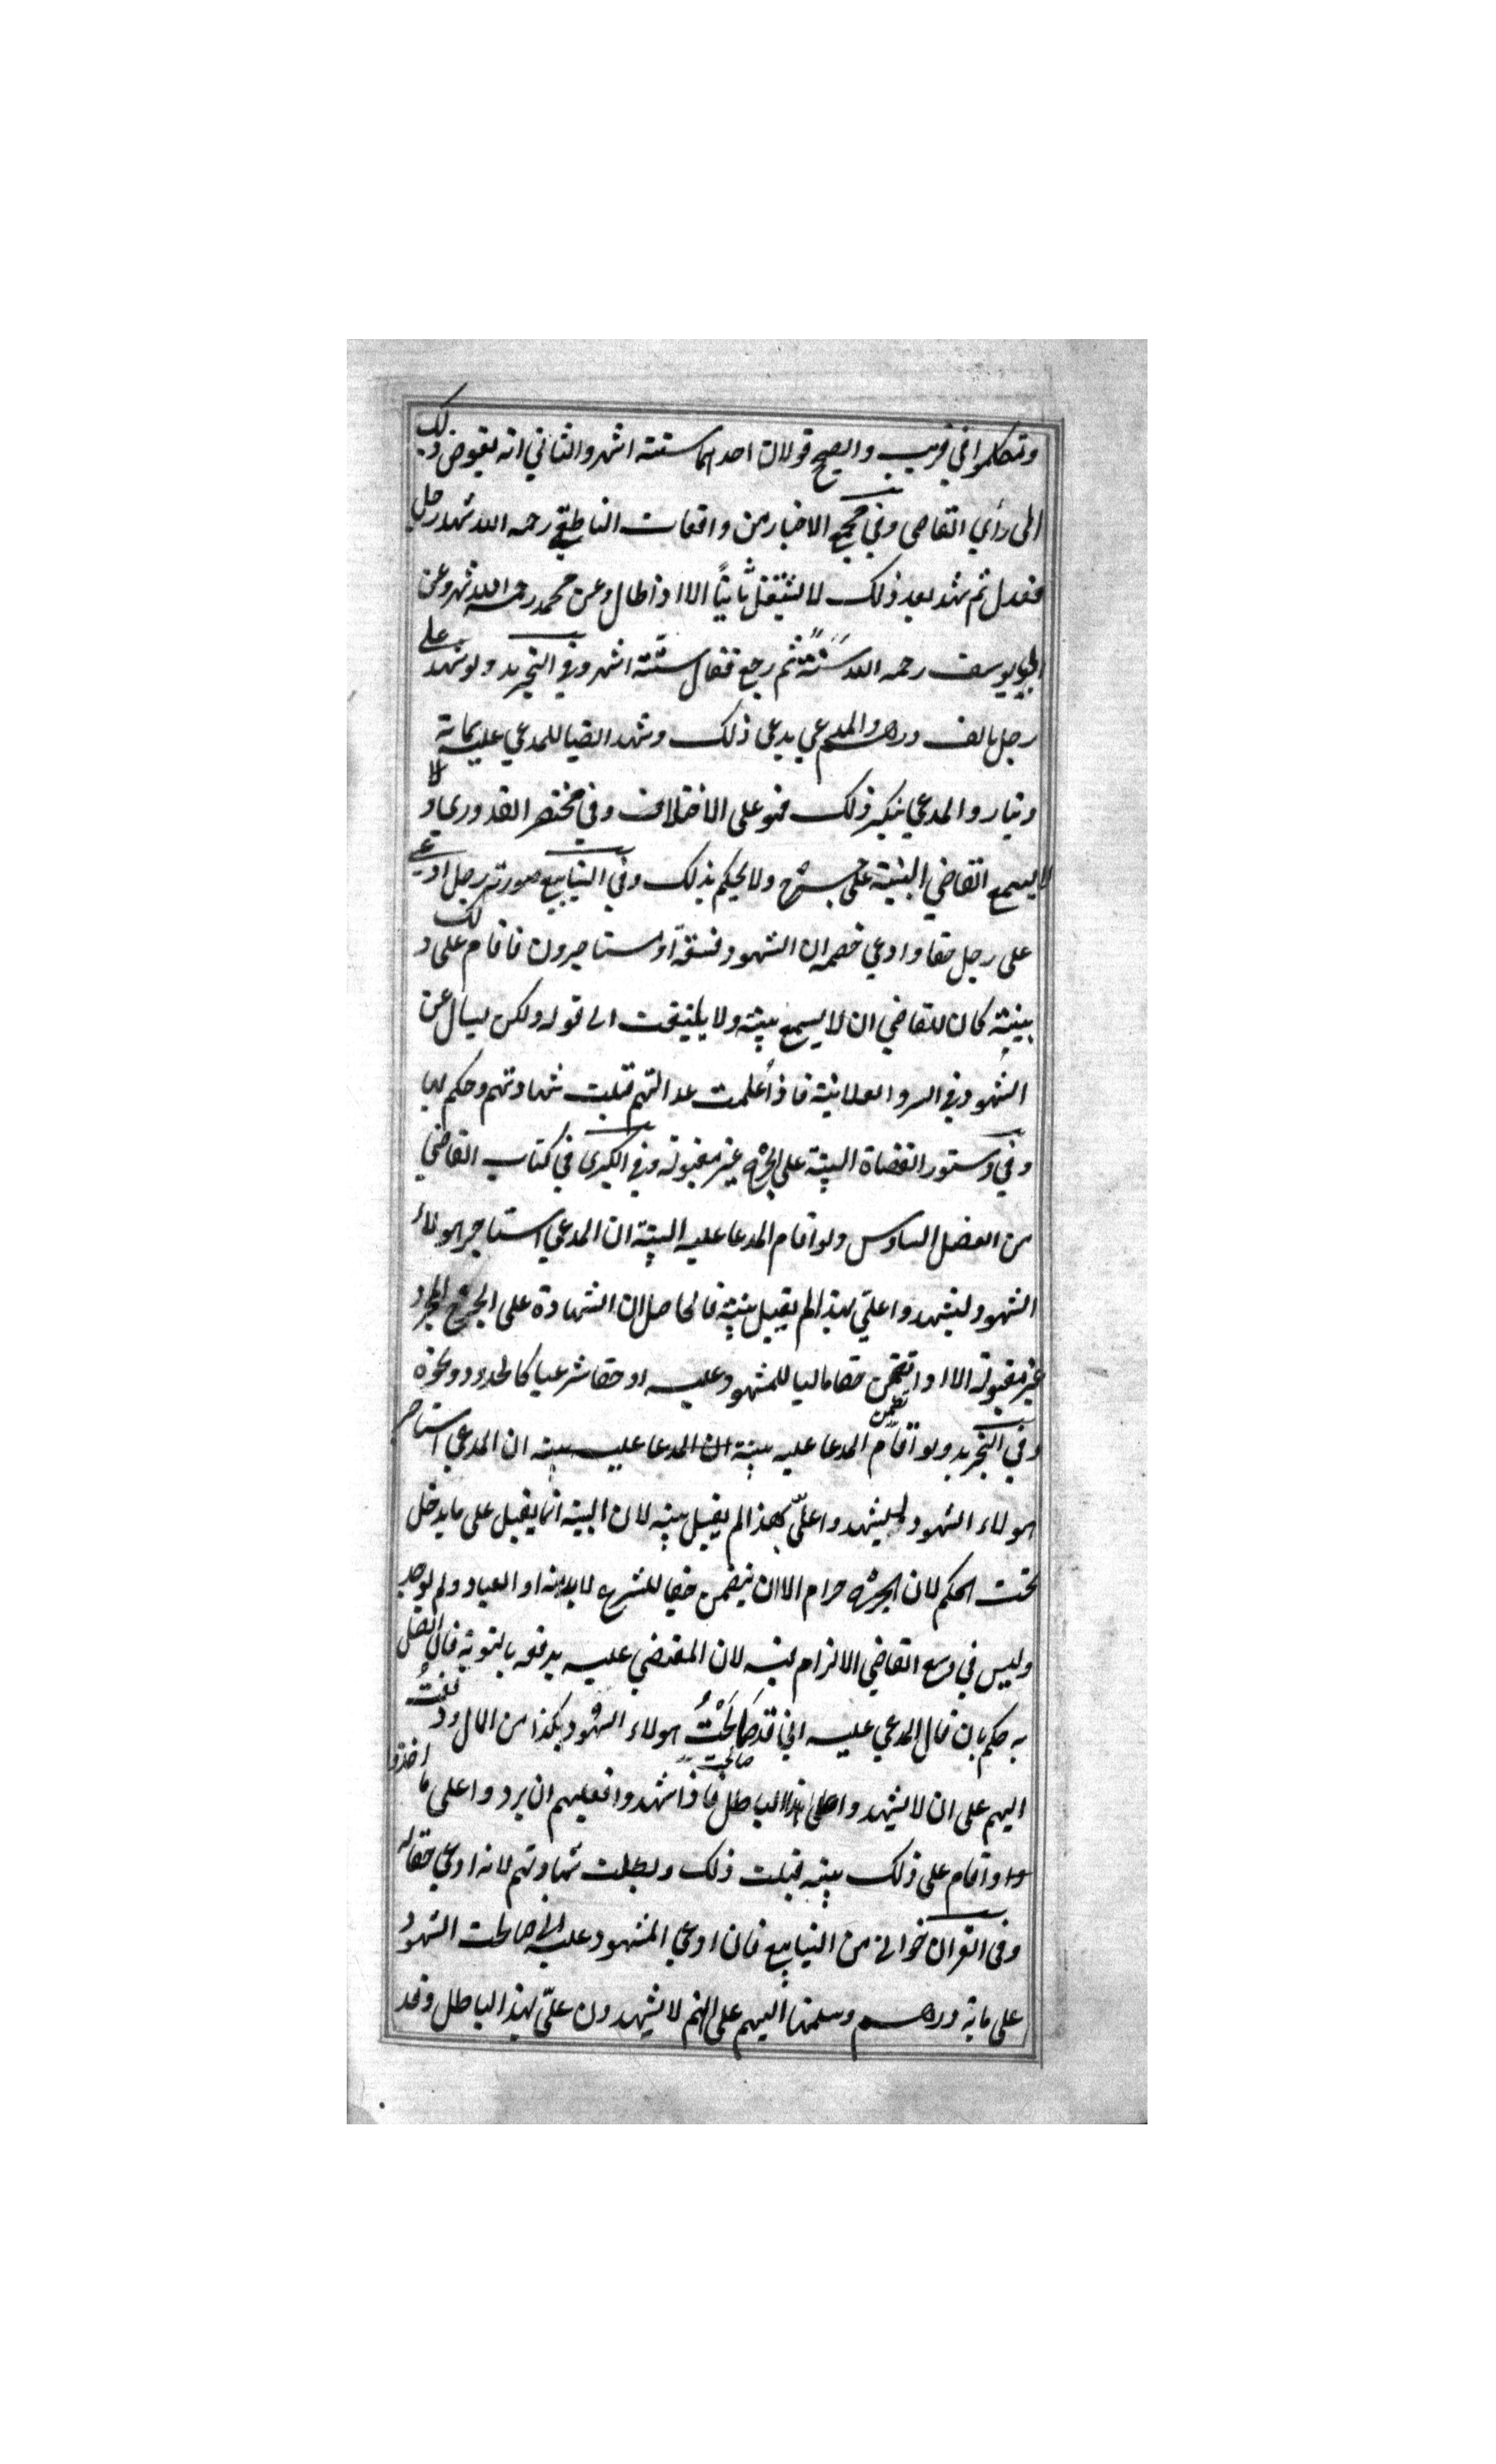 وتكلموا في قريب والصحيح قولان احدهما ستة اشهر والثاني انه يفوض ذلك
الى رأي القاضي وفي مجمع الاخبار من واقعات الناطفي رحمه الله شهد رجل
فعدل ثم شهد بعد ذلك لا يشتغل ثانيًا الا اذا طال وعن محمد رحمه الله شهر وعن
ابي يوسف رحمه الله سَنَةً ثم رجع فقال ستة اشهر وفي التجريد ولو شهد على
رجل بالف درهم والمدعي يدعي ذلك وشهد ايضا للمدعي عليه بماية
دينار والمدعي ينكر ذلك فهو على الاختلاف وفي مختصر القدوري ولا
لا يسمع القاضي البينة على جرح ولا يحكم بذلك وفي الينابيع صورته رجل ادعى
على رجل حقا وادعي خصمه ان الشهود فسقة او مستاجرون فاقام على ذلك
بينة كان للقاضي ان لا يسمع بينته ولا يلتفت الى قوله ولكن يسال عن
الشهود في السر والعلانية فاذا علمت عدالتهم قبلت شهادتهم وحكم بها
وفي دستور القضاة البينة على الجرح غير مقبولة وفي الكبرى في كتاب القاضي
من الفصل السادس ولو اقام المدعا عليه البينة ان المدعي استاجر هولاء
الشهود ليشهدوا علي بهذا لم يقبل بينة فالحاصل ان الشهادة على الجرح المجرد
غير مقبولة الا اذا تضمن حقا ماليا للمشهود عليه او حقا شرعيا كالحدود ونحوه
تضمن
وفي التجريد ولو اقام المدعا عليه بينة ان المدعا عليه بينة ان المدعي استاجر
هولاء الشهود ليشهدوا عليّ بهذا لم يقبل بينه لان البينة انما يقبل على ما يدخل
تحت الحكم لان الجرح حرام الا ان يتضمن حقا للشرع لابد منه او العباد ولم يوجد
وليس في وسع القاضي الالزام لانه لان المقضي عليه يدفعه بالتوبة فان اتصل
به حكم بان قال المدعي عليه اني قد صَالَحْتُ هولاء الشهود بكذا من المال ودفعتُ
صالحت
اليهم على ان لا يشهدوا على بهذا الباطل فاذا شهدوا فعليهم ان يردوا على ما اخذوا
واقام على ذلك بينه قبلت ذلك وبطلت شهادتهم لانه ادعي حقا له
وفي القران خواني من الينابيع فان ادعي المشهود عليه اني صالحت الشهود
على ماية درهم وسلمتها اليهم على انهم لا يشهدون عليّ بهذا الباطل وقد